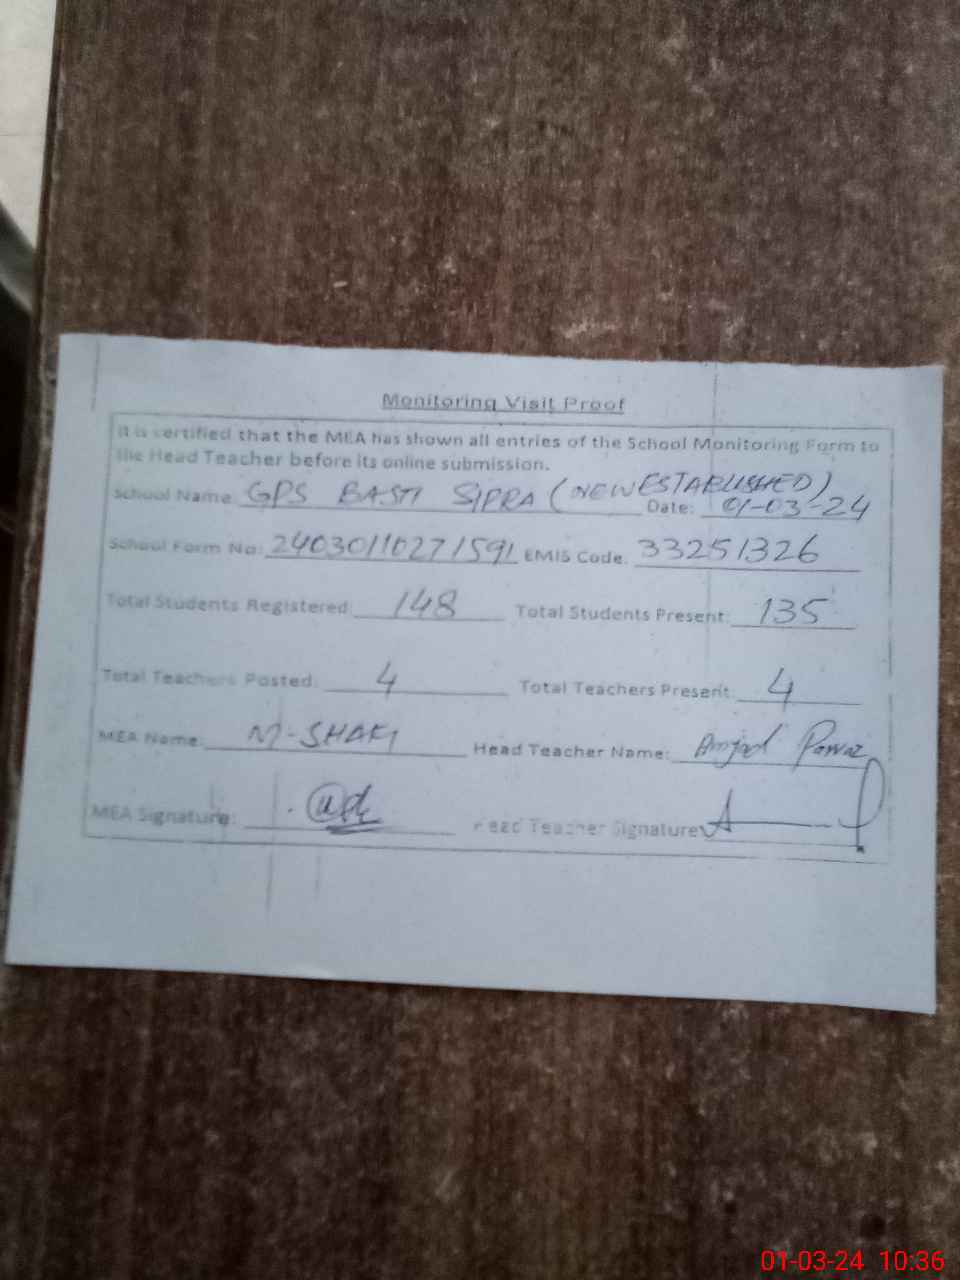 Monitoring Visit Proof
It is certified that the MEA has shown all entries of the School Monitoring Form to
the Head Teacher before its online submission.
School Name: GPS BASTI SIPRA (NEW ESTABLISHED) Date: 01-03-24
School Form No: 24030110271591 EMIS Code: 33251326
Total Students Registered: 148 Total Students Present: 135
Total Teachers Posted: 4 Total Teachers Present: 4
MEA Name: M-SHAFI Head Teacher Name: Amjad
MEA Signature: Head Teacher Signature:
01-03-24 10:36